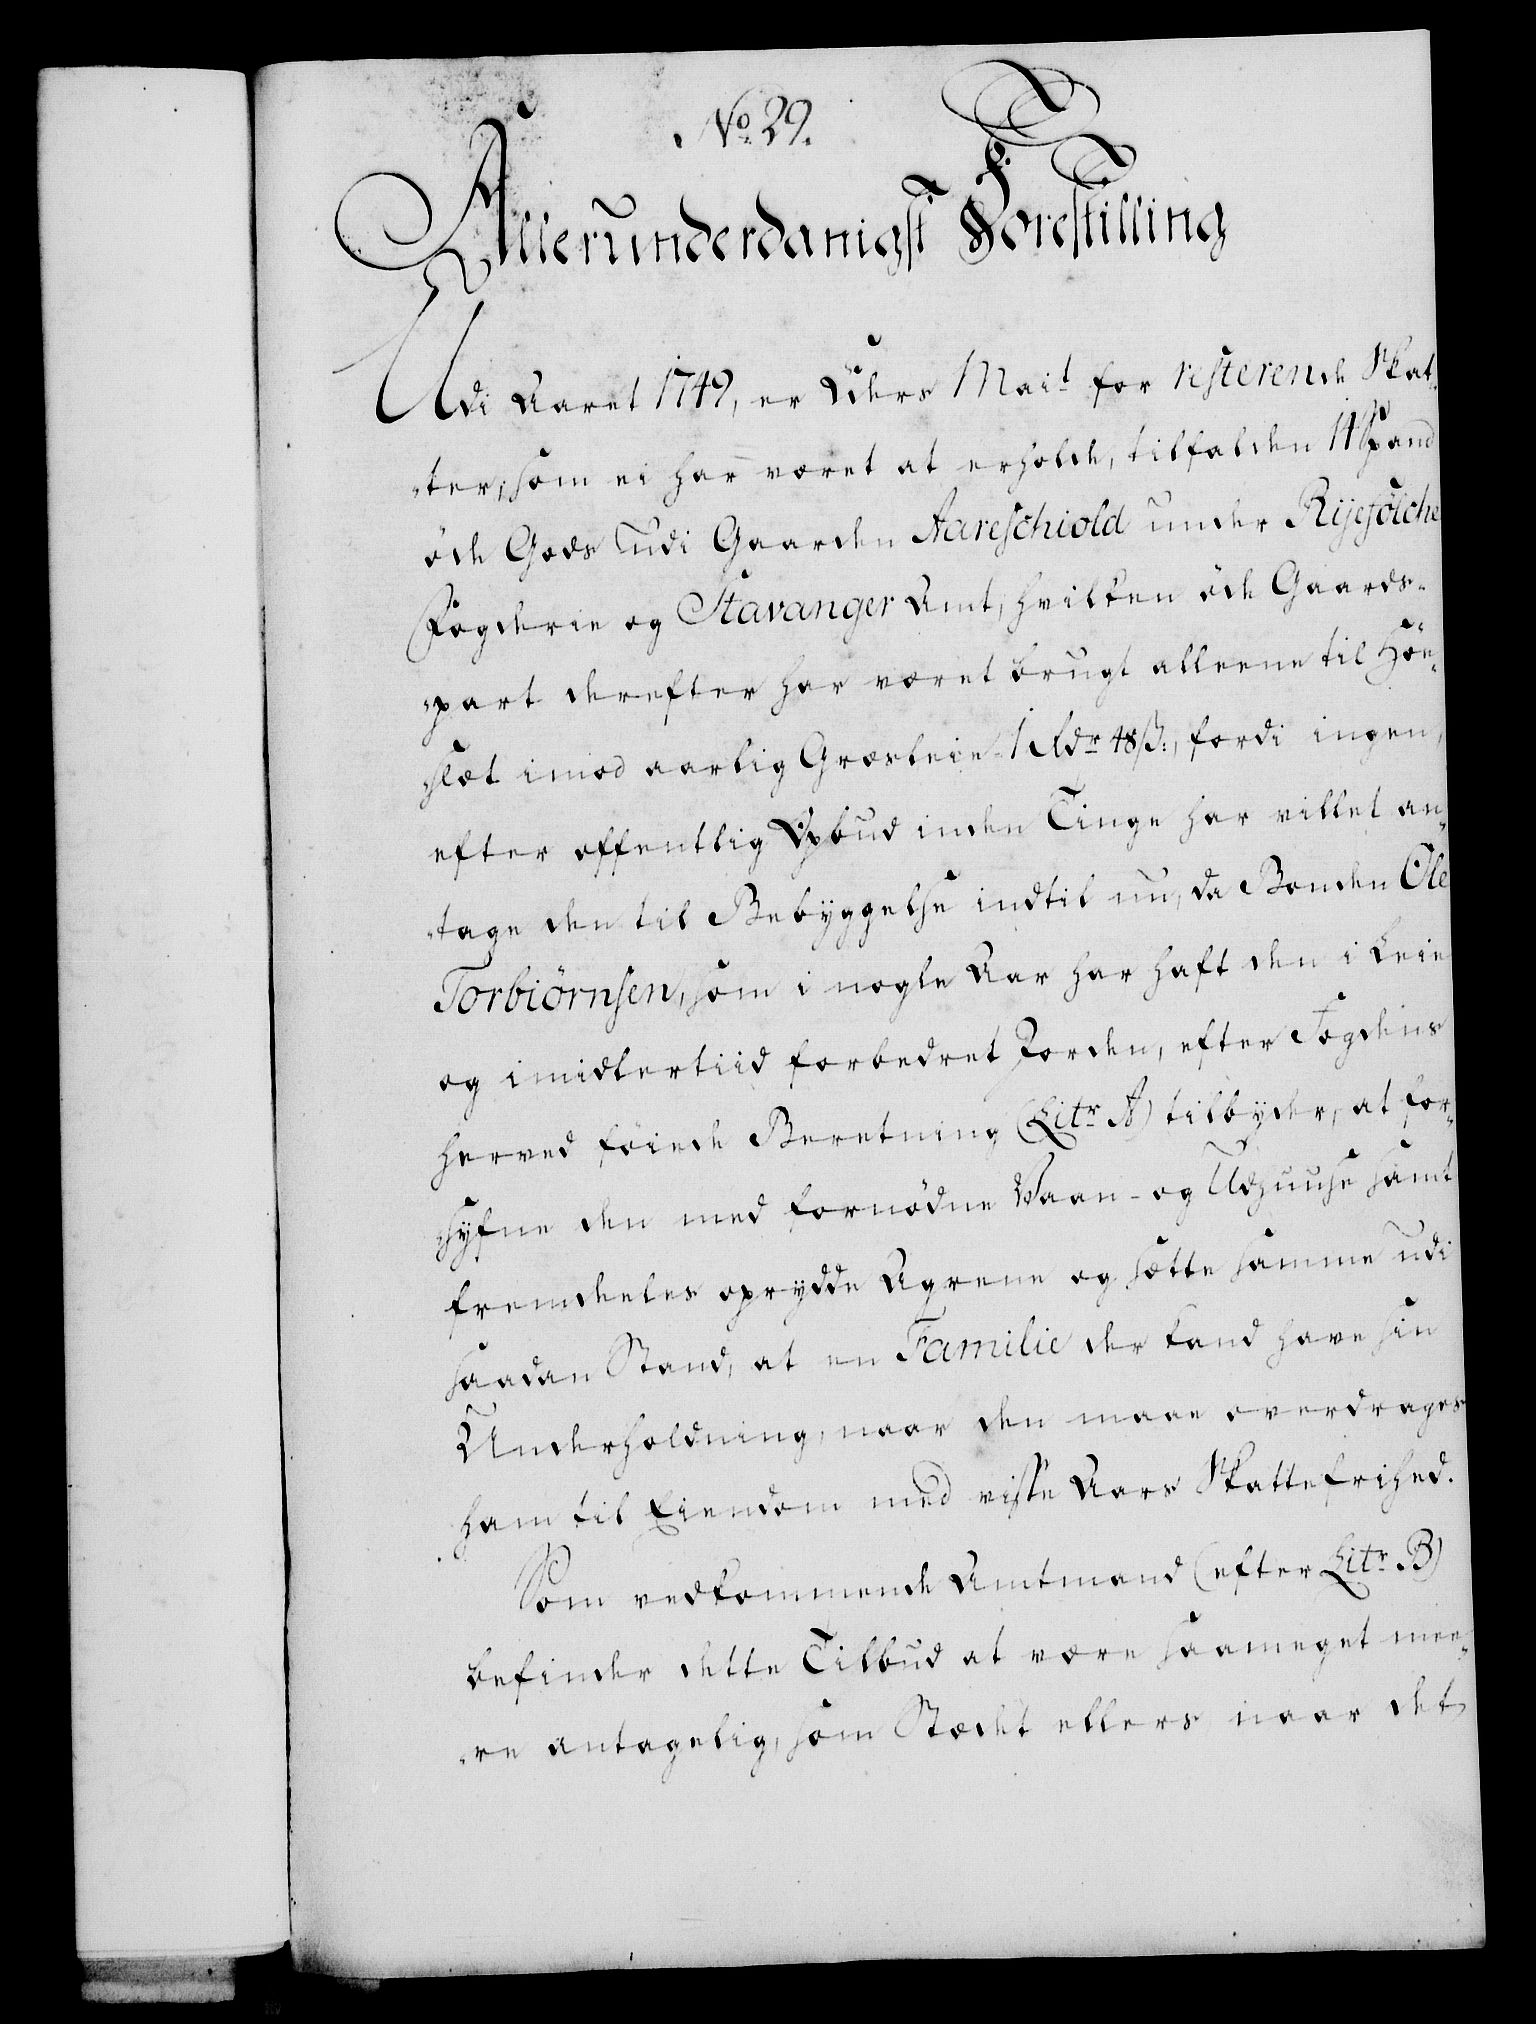 No. 29.
Allerunderdanigst Forestilling
Udi Aaret 1749, er Eders Mait for resterende Skat-
-ter, som ei har været at erholde, tilfalden 1 1/2 Spand
öde Gods udi Gaarden Aareschiold under Rijefölche
Fogderie og Stavanger Amt, hvilken öde Gaards-
-part derefter har været brugt alleene til Höe-
-slæt imod aarlig Græsleie 1 Rdr 48 ß:, fordi ingen,
efter offentlig Opbud inden Tinge har villet an-
-tage den til Bebyggelse indtil nu, da Bonden Ole
Torbiörnsen, som i nogle Aar har haft den i Leie
og imidlertiid forbedret Jorden, efter Fogdens
herved föiede Beretning (Litr A) tilbyder, at for-
-syfne den med fornödne Vaan- og Udhuuse samt
fremdeles oprydde Agrene og sætte samme udi
saadan Stand, at en Familie der kand have sin
Underholdning, naar den maae overdrages
ham til Eiendom med visse Aars Skattefrihed.
Som vedkommende Amtmand (efter Litr B)
befinder dette Tilbud at være saameget mee-
-re antagelig, som Stædet ellers, naar det